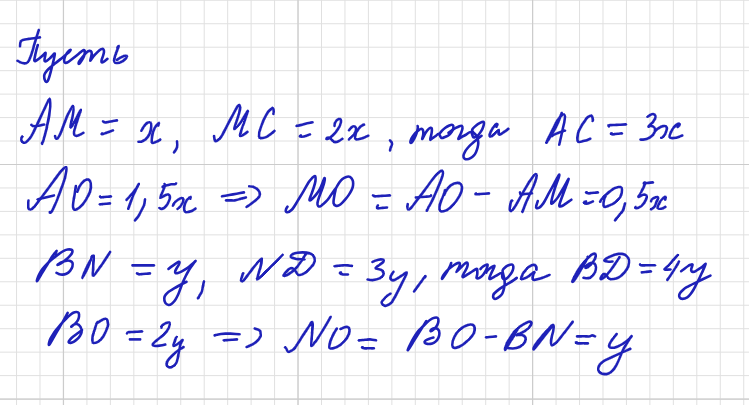 Пусть
AM = x, MC = 2x, тогда AC = 3x
AO = 1,5x => MO = AO - AM = 0,5x
BN = y, ND = 3y, тогда BD = 4y
BO = 2y => NO = BO - BN = y